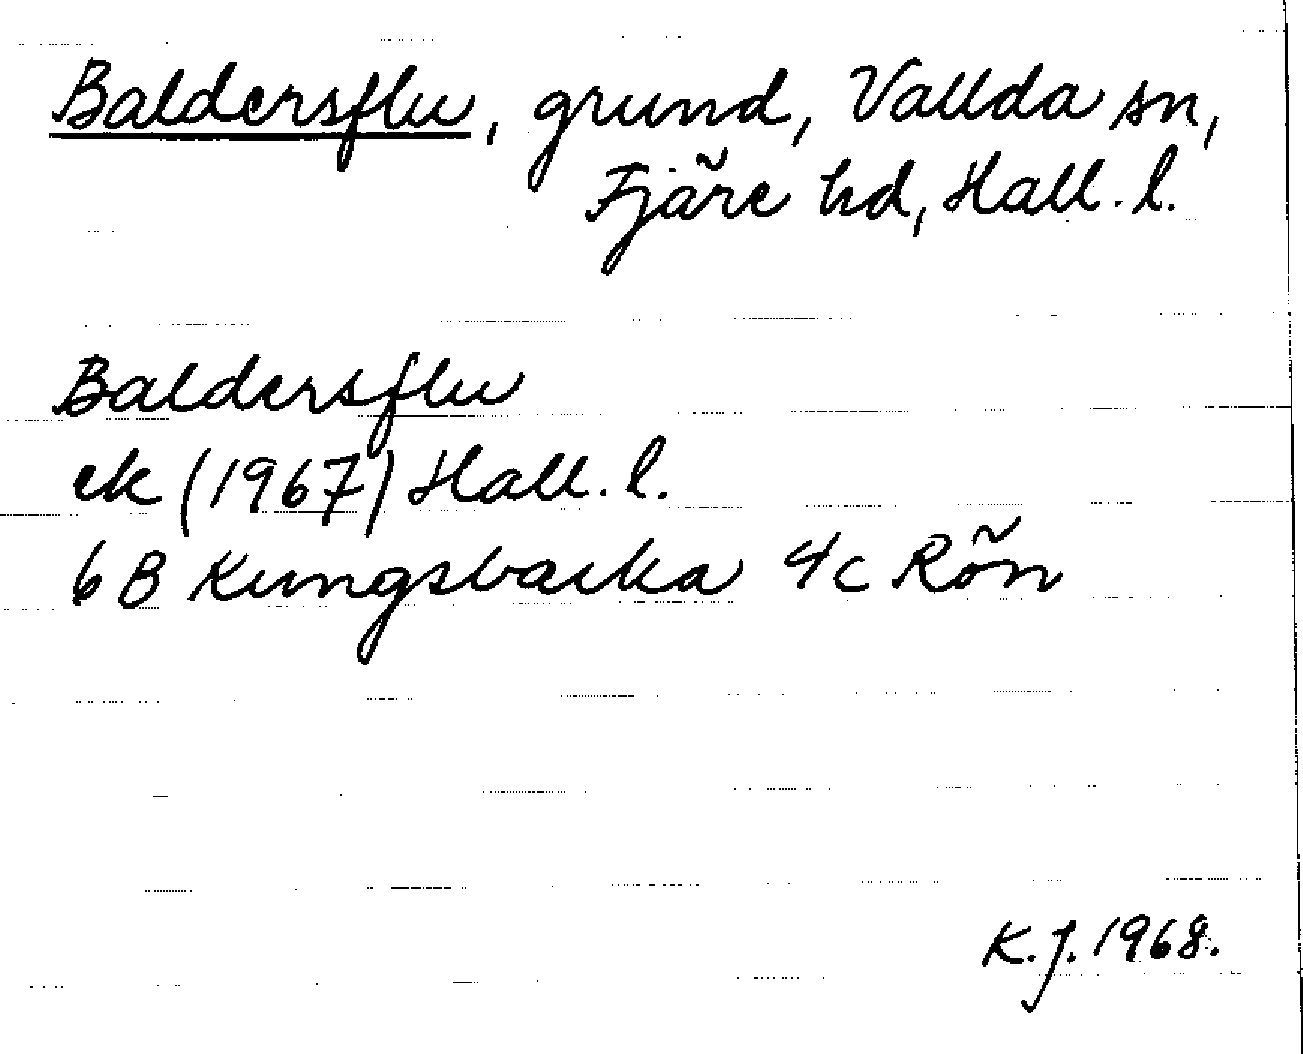 Baldersflu, grund, Vallda sn,
Fjäre hd, Hall. l.
Baldersflu
ek (1967) Hall. l.
6 B Kungsbacka 4c Rön
K.J. 1968.